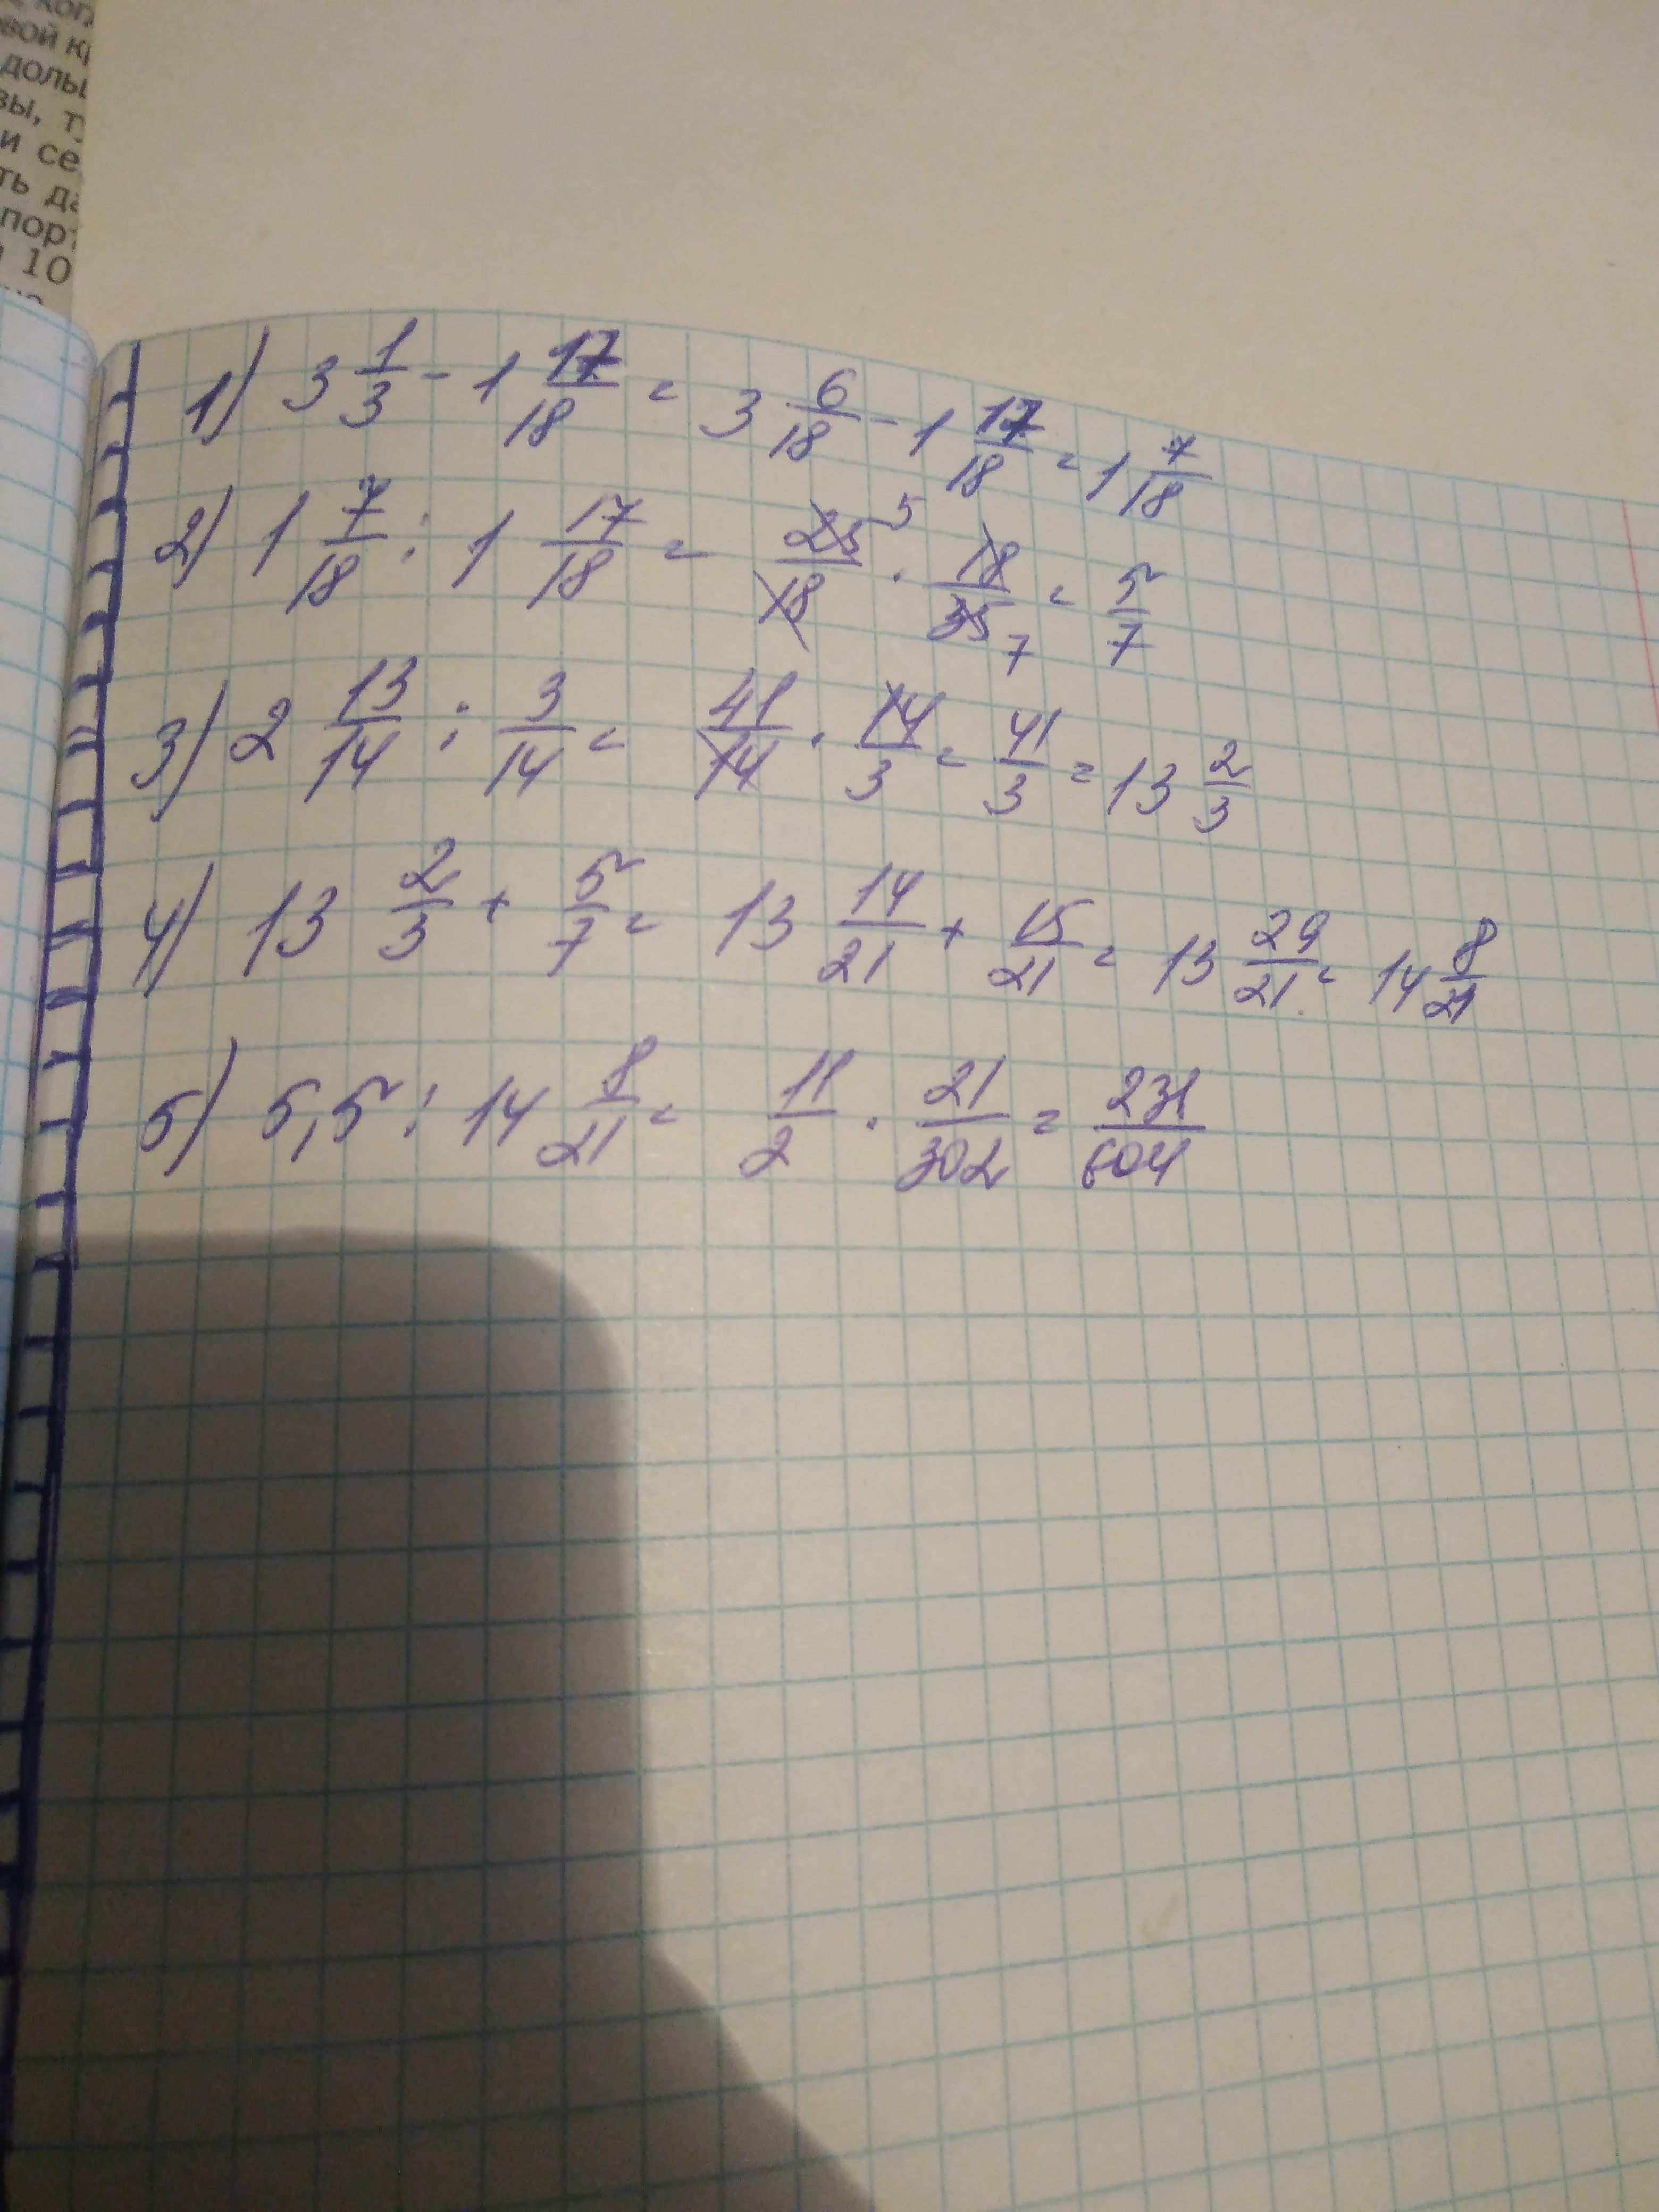 ког
вой кр
доль
вы, ту
и се
ть да
порт
10
1) 3 1/3 - 1 17/18 = 3 6/18 - 1 17/18 = 1 7/18
2) 1 7/18 : 1 17/18 = 25/18 5 · 18/35 7 = 5/7
3) 2 13/14 : 3/14 = 41/14 · 14/3 = 41/3 = 13 2/3
4) 13 2/3 + 5/7 = 13 14/21 + 15/21 = 13 29/21 = 14 8/21
5) 5,5 : 14 8/21 = 11/2 · 21/302 = 231/604